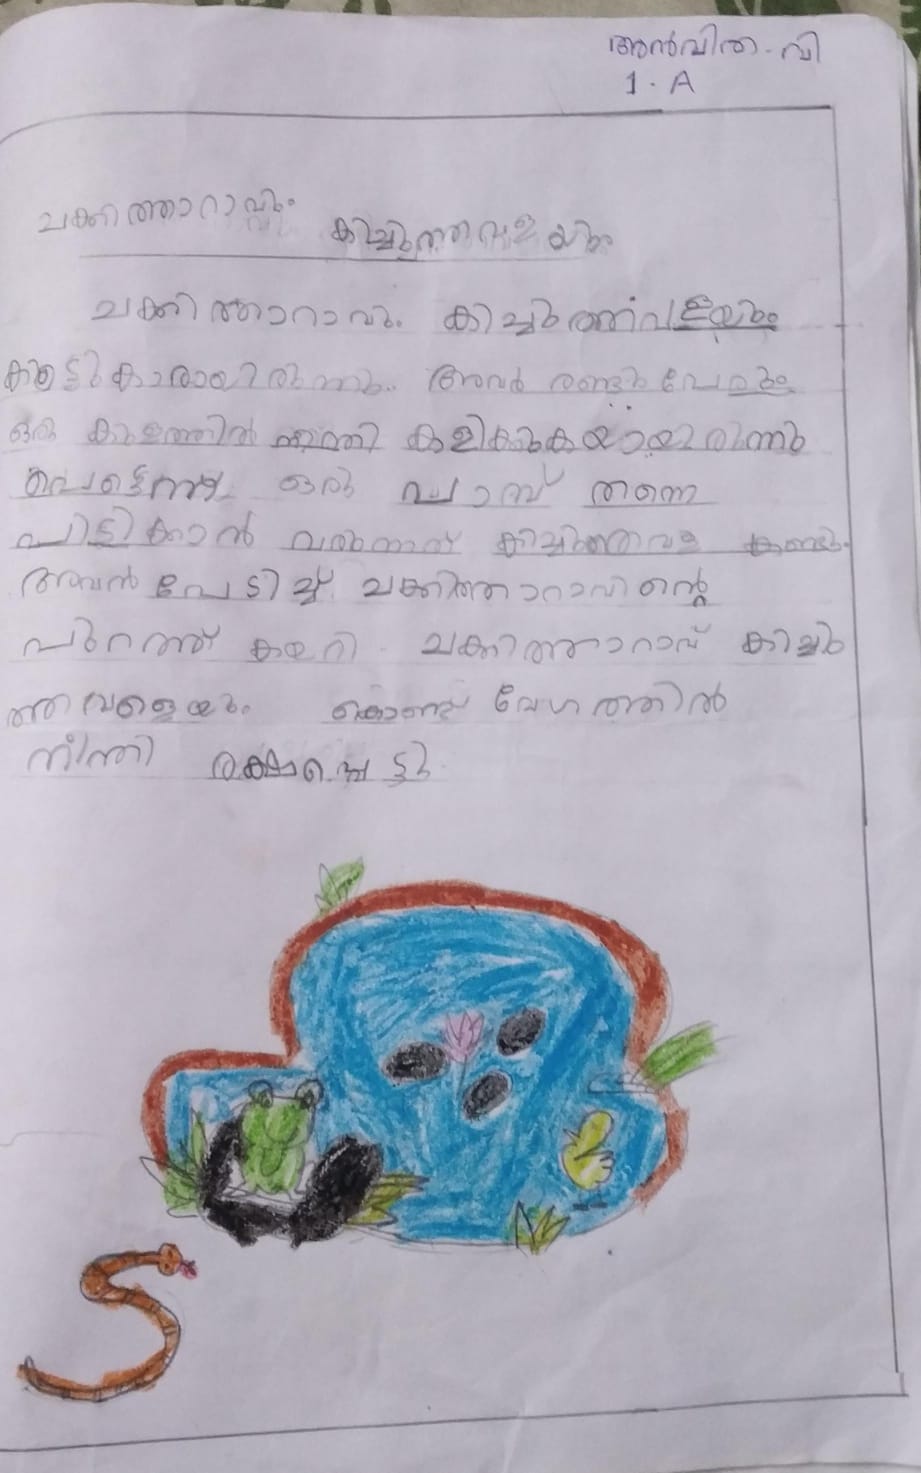 അൻവിത. വി
1. A
ചക്കിത്താറാവും
കിച്ചുത്തവളയും
ചക്കിത്താറാവും കിച്ചുത്തവളയും
കൂട്ടുകാരായിരുന്നു. അവർ രണ്ടുപേരും
ഒരു കുളത്തിൽ നീന്തി കളിക്കുകയായിരുന്നു
പെട്ടെന്ന് ഒരു പാമ്പ് തന്നെ
പിടിക്കാൻ വരുന്നത് കിച്ചുത്തവള കണ്ടു.
അവൻ പേടിച്ച് ചക്കിത്താറാവിന്റെ
പുറത്ത് കയറി. ചക്കിത്താറാവ് കിച്ചു
ത്തവളയെയും കൊണ്ട് വേഗത്തിൽ
നീന്തി രക്ഷപ്പെട്ടു.